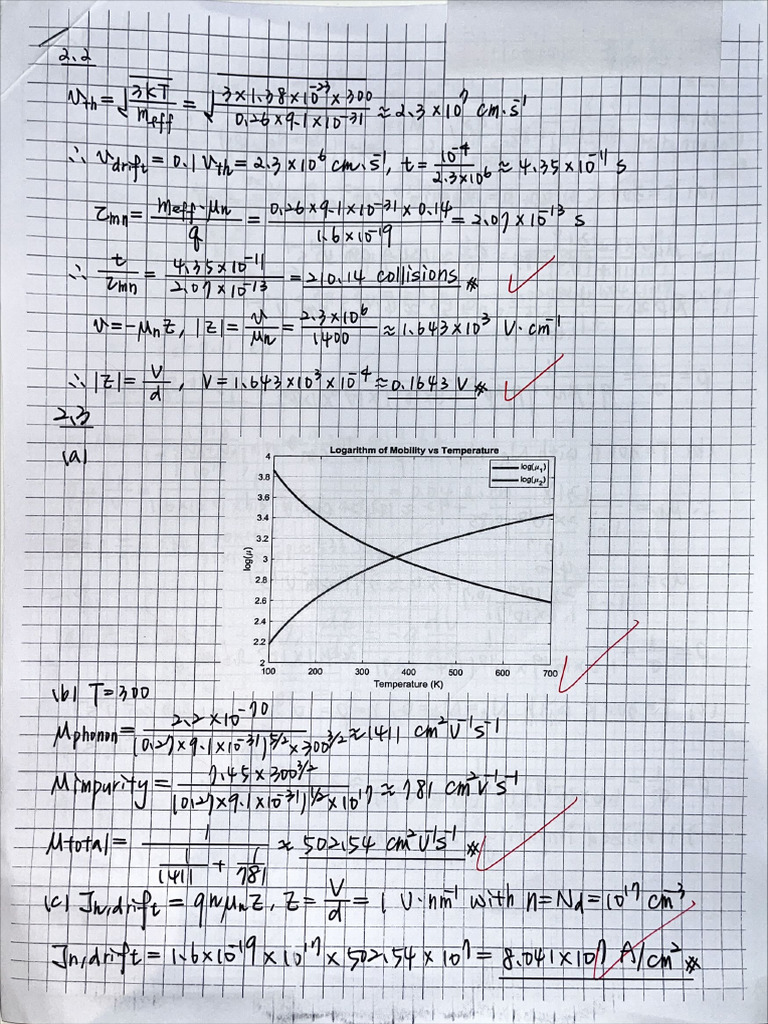 2.2
v_th = √(3kT/m_eff) = √(3×1.38×10^-23×300 / 0.26×9.1×10^-31) ≈ 2.3×10^7 cm·s^-1
∴ v_drift = 0.1 v_th = 2.3×10^6 cm·s^-1, t = 10^-4 / 2.3×10^6 ≈ 4.35×10^-11 s
τ_mn = m_eff·μn / q = 0.26×9.1×10^-31×0.14 / 1.6×10^-19 = 2.07×10^-13 s
∴ t/τ_mn = 4.35×10^-11 / 2.07×10^-13 = 210.14 collisions ※
v = -μnƐ, |Ɛ| = v/μn = 2.3×10^6 / 1400 ≈ 1.643×10^3 V·cm^-1
∴ |Ɛ| = V/d, V = 1.643×10^3×10^-4 ≈ 0.1643 V ※
2.3
(a)
Logarithm of Mobility vs Temperature
log(μ1)
log(μ2)
log(μ)
4
3.8
3.6
3.4
3.2
3
2.8
2.6
2.4
2.2
2
100 200 300 400 500 600 700
Temperature (K)
(b) T=300
μphonon = 2.2×10^-70 / (0.27×9.1×10^-31)^5/2 × 300^3/2 ≈ 1411 cm^2V^-1s^-1
μimpurity = 7.45×300^3/2 / (0.27×9.1×10^-31)^1/2 × 10^17 ≈ 781 cm^2V^-1s^-1
μtotal = 1 / (1/1411 + 1/781) ≈ 502.54 cm^2V^-1s^-1 ※
(c) Jn,drift = qnμnƐ, Ɛ = V/d = 1 V·nm^-1 with n=Nd=10^17 cm^-3
Jn,drift = 1.6×10^-19 × 10^17 × 502.54 × 10^7 = 8.041×10^7 A/cm^2 ※